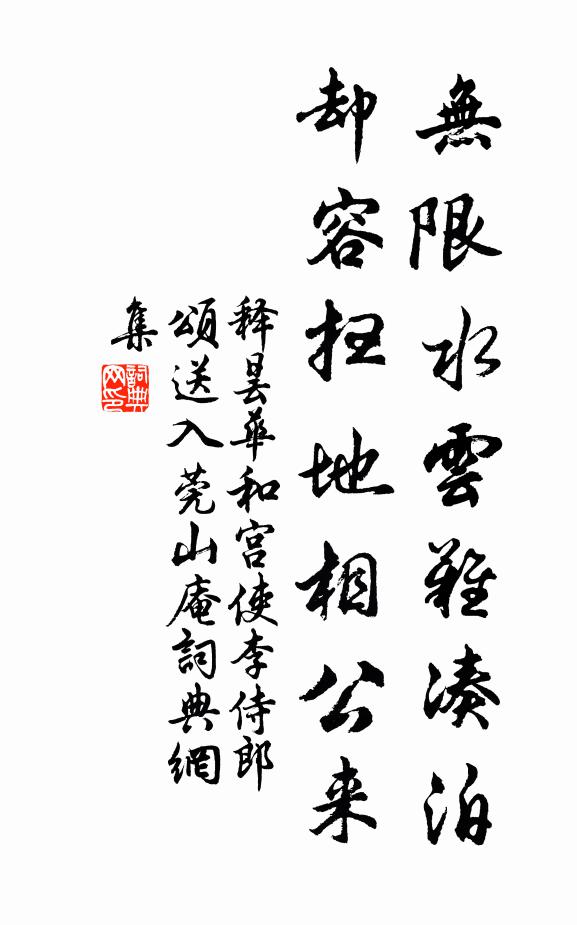 無限水雲難湊泊
却容扫地相公来
释曇華和宫使李侍郎
頌送入莞山庵詞典網
集
詞典网印